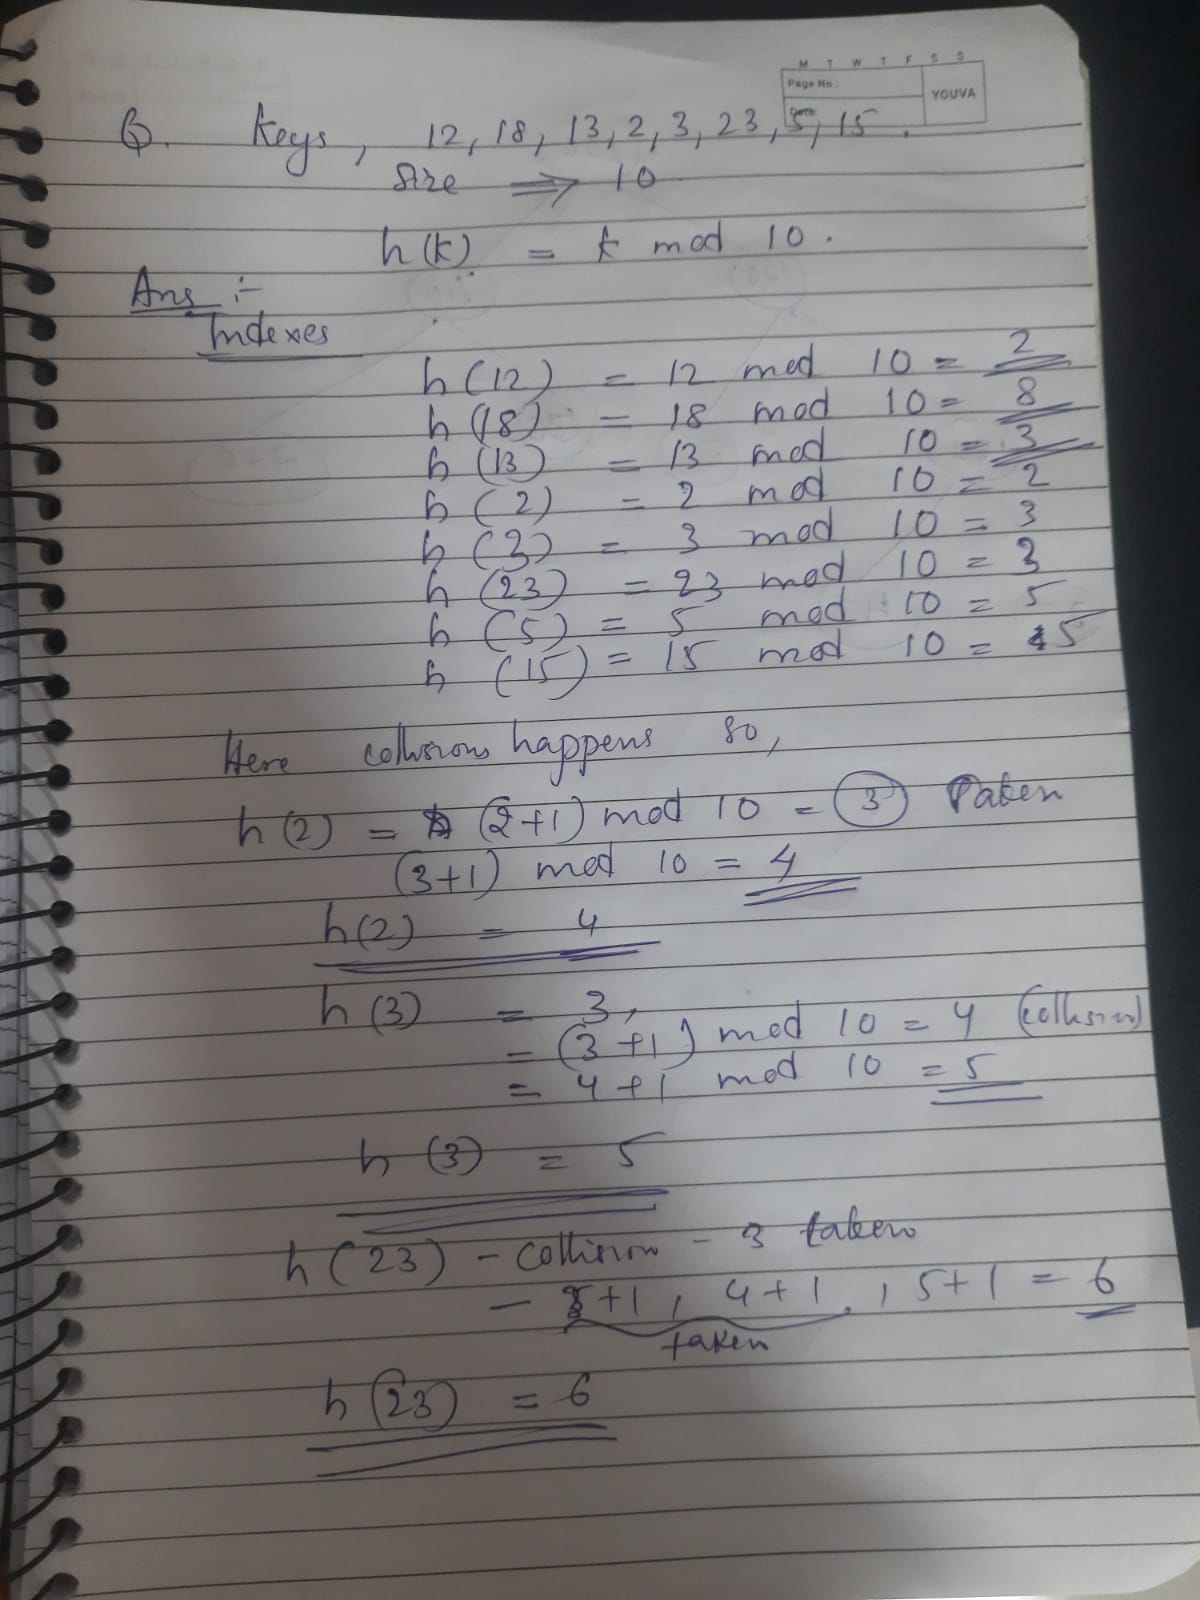 M T W T F S S
Page No.:
Date:
YOUVA
Q. Keys, 12, 18, 13, 2, 3, 23, 5, 15.
Size ⇒ 10
h(k) = k mod 10.
Ans :-
Indexes
h(12) = 12 mod 10 = 2
h(18) = 18 mod 10 = 8
h(13) = 13 mod 10 = 3
h(2) = 2 mod 10 = 2
h(3) = 3 mod 10 = 3
h(23) = 23 mod 10 = 3
h(5) = 5 mod 10 = 5
h(15) = 15 mod 10 = 5
Here collusions happens so,
h(2) = (2+1) mod 10 = 3 Taken
(3+1) mod 10 = 4
h(2) = 4
h(3) = 3,
= (3+1) mod 10 = 4 (collusion)
= 4+1 mod 10 = 5
h(3) = 5
h(23) - collision - 3 taken
- 3+1, 4+1, , 5+1 = 6
taken
h(23) = 6